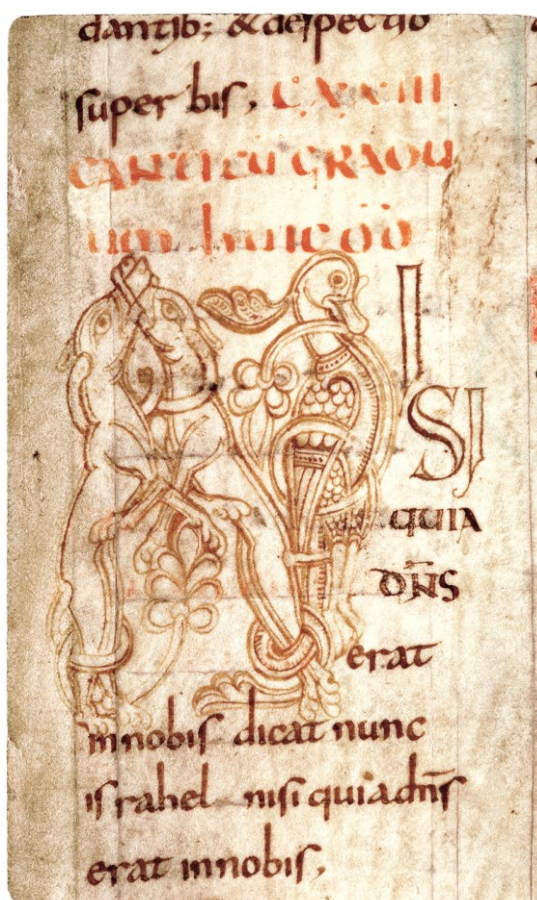 dantib; & despectio
superbis, CXXIII
CANTICU GRADU
UM huic dd
NI
SI
QUIA
DN̄S
erat
innobis dicat nunc
israhel nisi quia dn̄s
erat innobis,